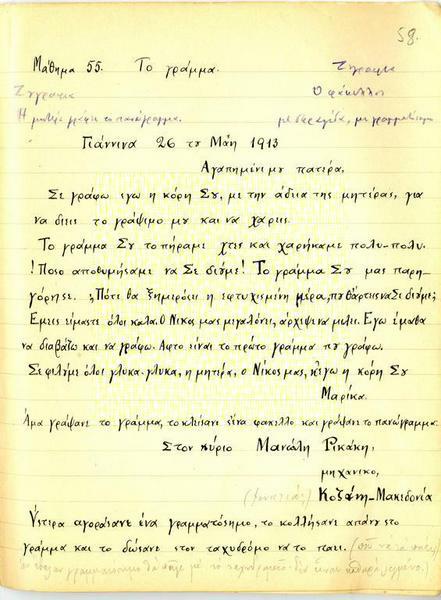 58.
Μάθημα 55. Το γράμμα.
Ζγγραφια
Ζγγραφια Ο φάκελλος
Η μικρή γράφι το πανόγραμμα. με σφραγίδα, με γραμματόσιμο
Γιάννινα 26 τυ Μάη 1913
Αγαπημένι μυ πατέρα,
Σε γράφω εγω η κόρη Συ, με την άδια της μητέρας, για
να διεις το γράψιμο μυ και να χαριις.
Το γράμμα Συ το πήραμε χτες και χαρήκαμε πολυ-πολυ.
! Ποσο αποθυμήσαμε να Σε διυμε! Το γράμμα Συ μας παρη-
γόρησε. ; Πότε θα ξημερόσι η εφτυχισμένη μέρα, πυ θάρτις να Σε διυμε;
Εμις είμαστε όλοι καλα. Ο Νίκος μας μεγαλόνι, άρχιψε να μιλιει. Εγω έμαθα
να διαβάζω και να γράφω. Αφτο είναι το πρότο γράμμα πυ γράφω.
Σε φιλυμε όλοι γλυκα-γλυκα, η μητέρα, ο Νίκος μας, κ' εγω η κόρη Συ
Μαρίκα.
Άμα γράψανε το γράμμα, το κλίσανε σ' ένα φακελλο και γράψανε το πανώγραμμα.
Στον κύριο Μανώλη Ρικάκη,
μηχανικο,
Κοζάνη-Μακεδονία
Υστερα αγοράσανε ένα γραμματόσημο, το κολλήσανε απάνυ στο
γράμμα και το δώσανε στον ταχυδρόμο να το παει.